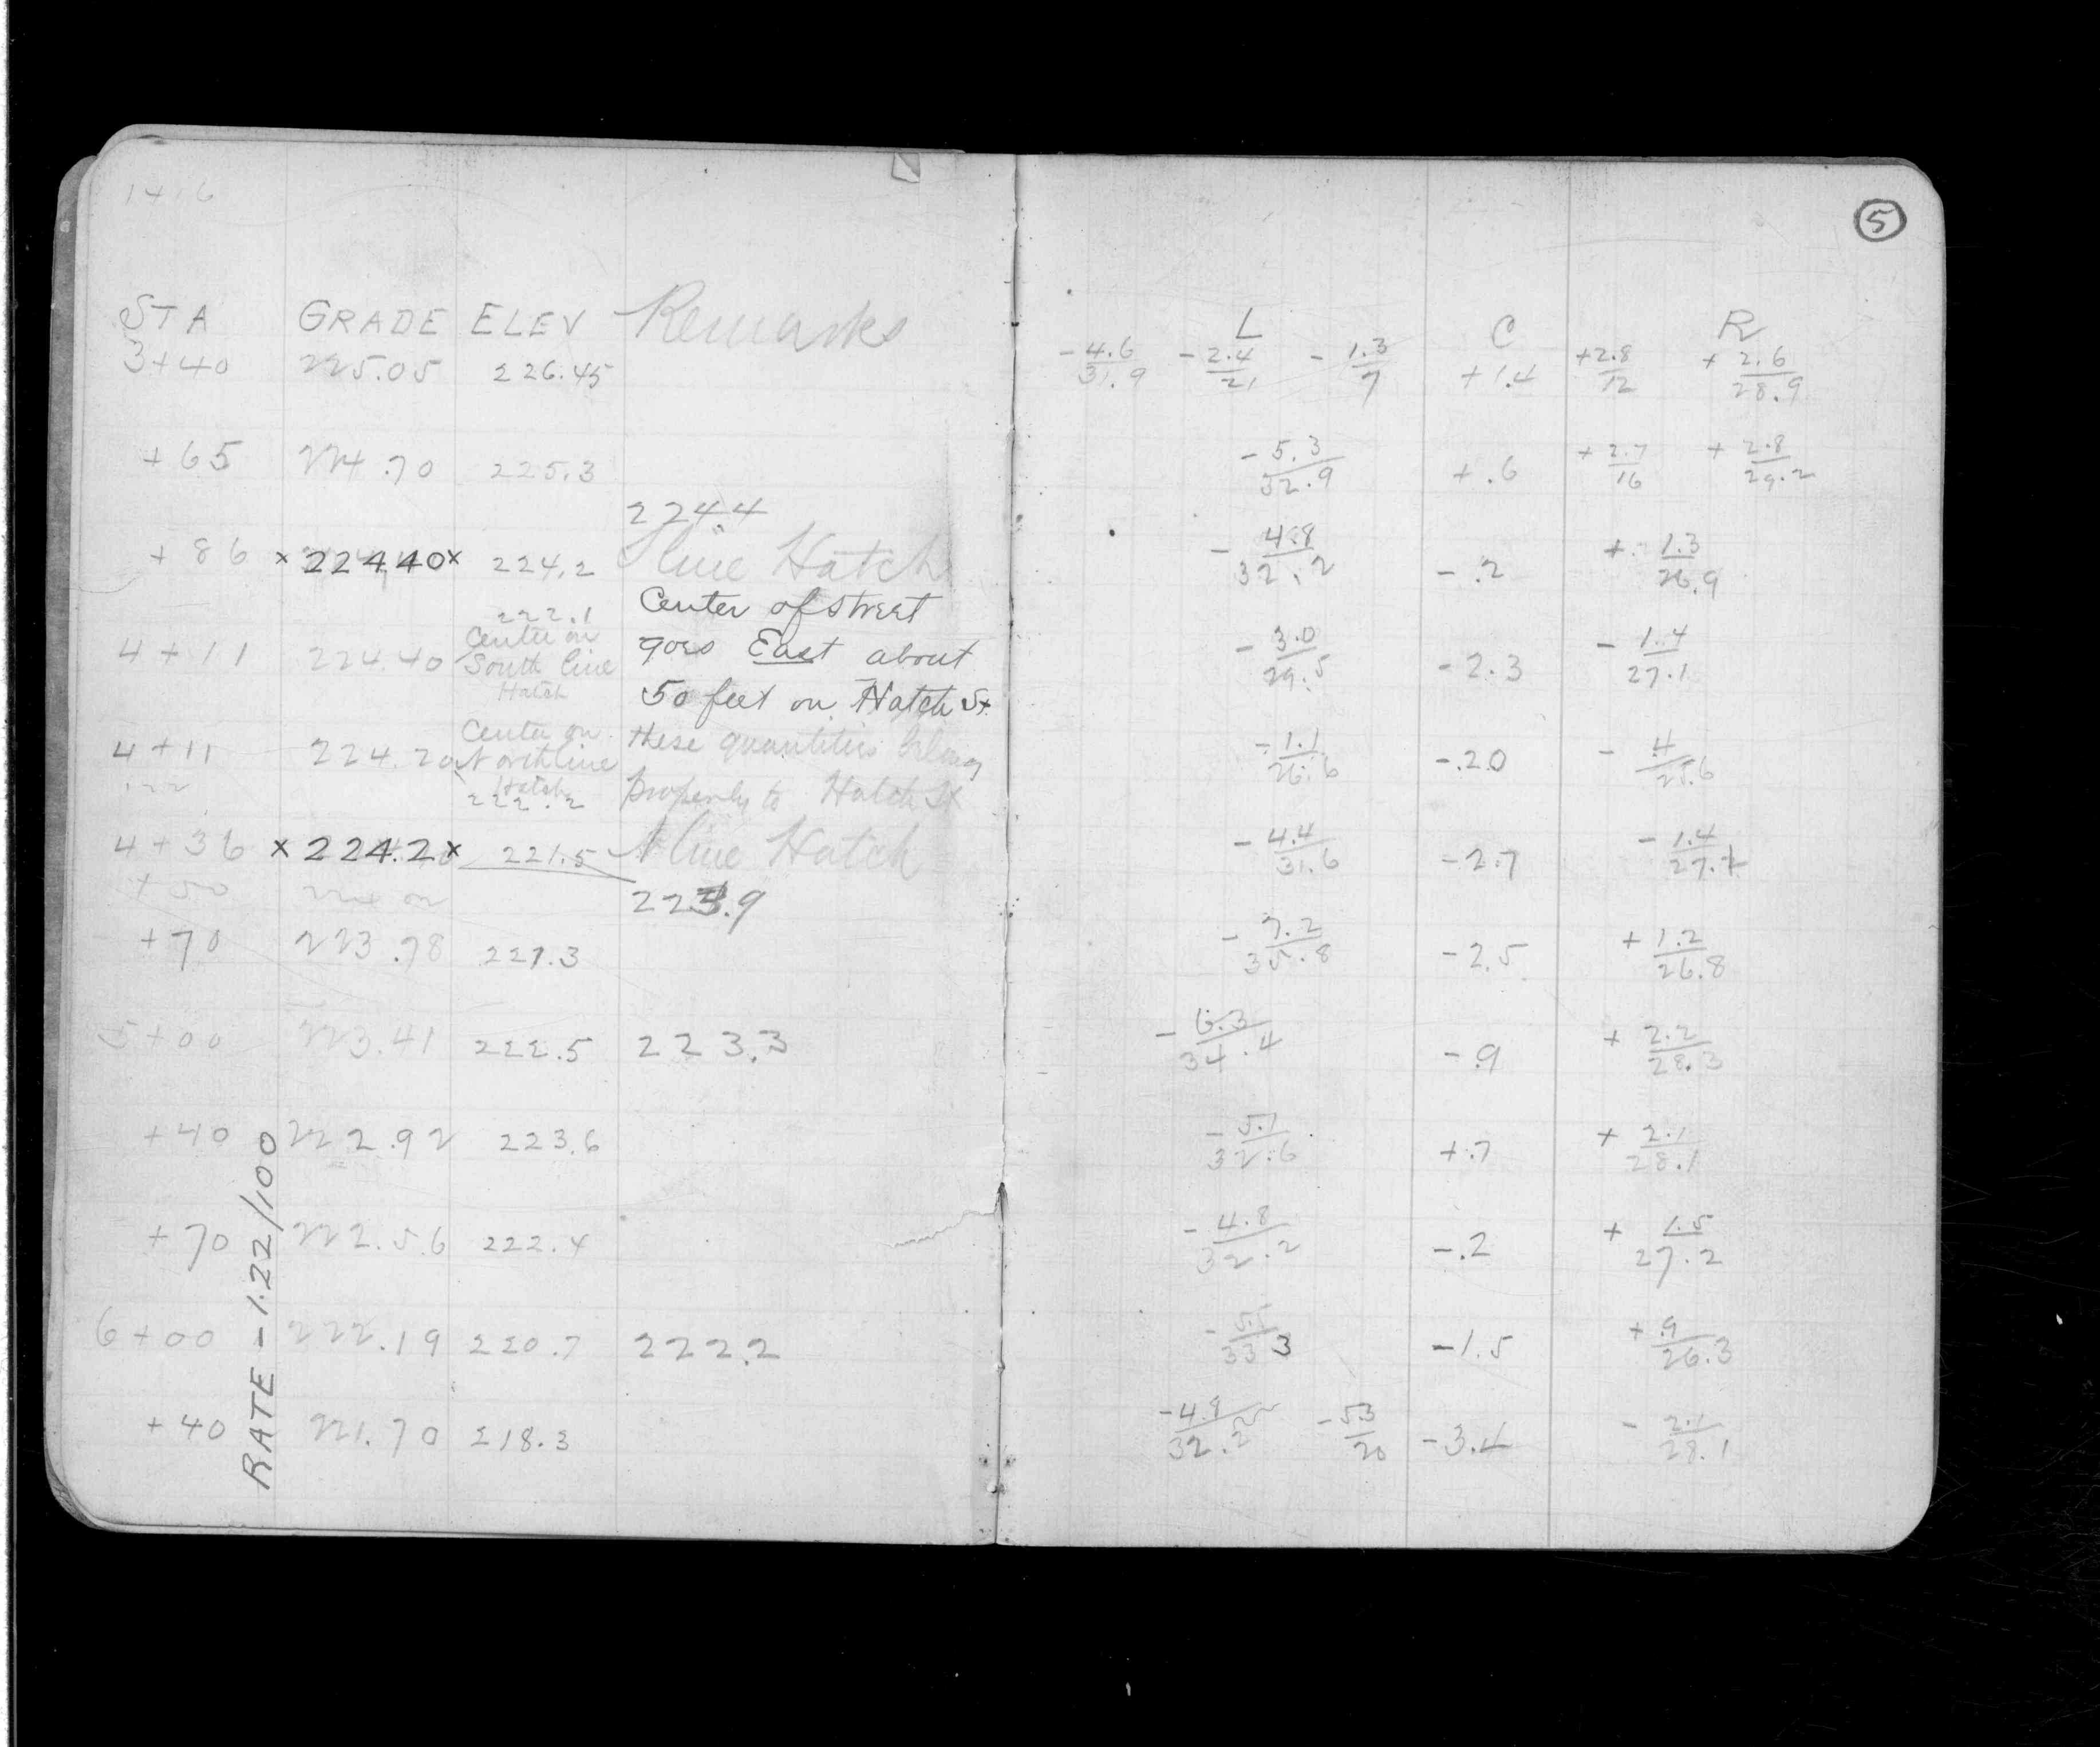 1+16
STA GRADE ELEV Remarks
3+40 225.05 226.45
+65 224.70 225.3
224.4
+86 x224.40x 224.2 S line Hatch
222.1 Center of street
4+11 224.40 Center on South line Hatch goes East about
50 feet on Hatch St.
4+11 224.20 Center on North line Hatch these quantities belong
222.2 properly to Hatch St
4+36 x224.2x 221.5 N line Hatch
+50 224.02 223.9
+70 223.78 221.3
5+00 223.41 222.5 223.3
+40 222.92 223.6
+70 222.56 222.4
6+00 222.19 220.7 222.2
+40 221.70 218.3
RATE - 1.22/100
5
L C R
-4.6/31.9 -2.4/21 -1.3/7 +1.4 +2.8/12 +2.6/28.9
-5.3/32.9 +.6 +2.7/16 +2.8/29.2
-4.8/32.2 -.2 +1.3/26.9
-3.0/29.5 -2.3 -1.4/27.1
-1.1/26.6 -2.0 -.4/25.6
-4.4/31.6 -2.7 -1.4/27.1
-7.2/35.8 -2.5 +1.2/26.8
-6.3/34.4 -.9 +2.2/28.3
-5.1/32.6 +.7 +2.1/28.1
-4.8/32.2 -.2 +1.5/27.2
-5.5/33.3 -1.5 +.9/26.3
-4.9/32.2 -5.3/20 -3.4 -2.1/28.1